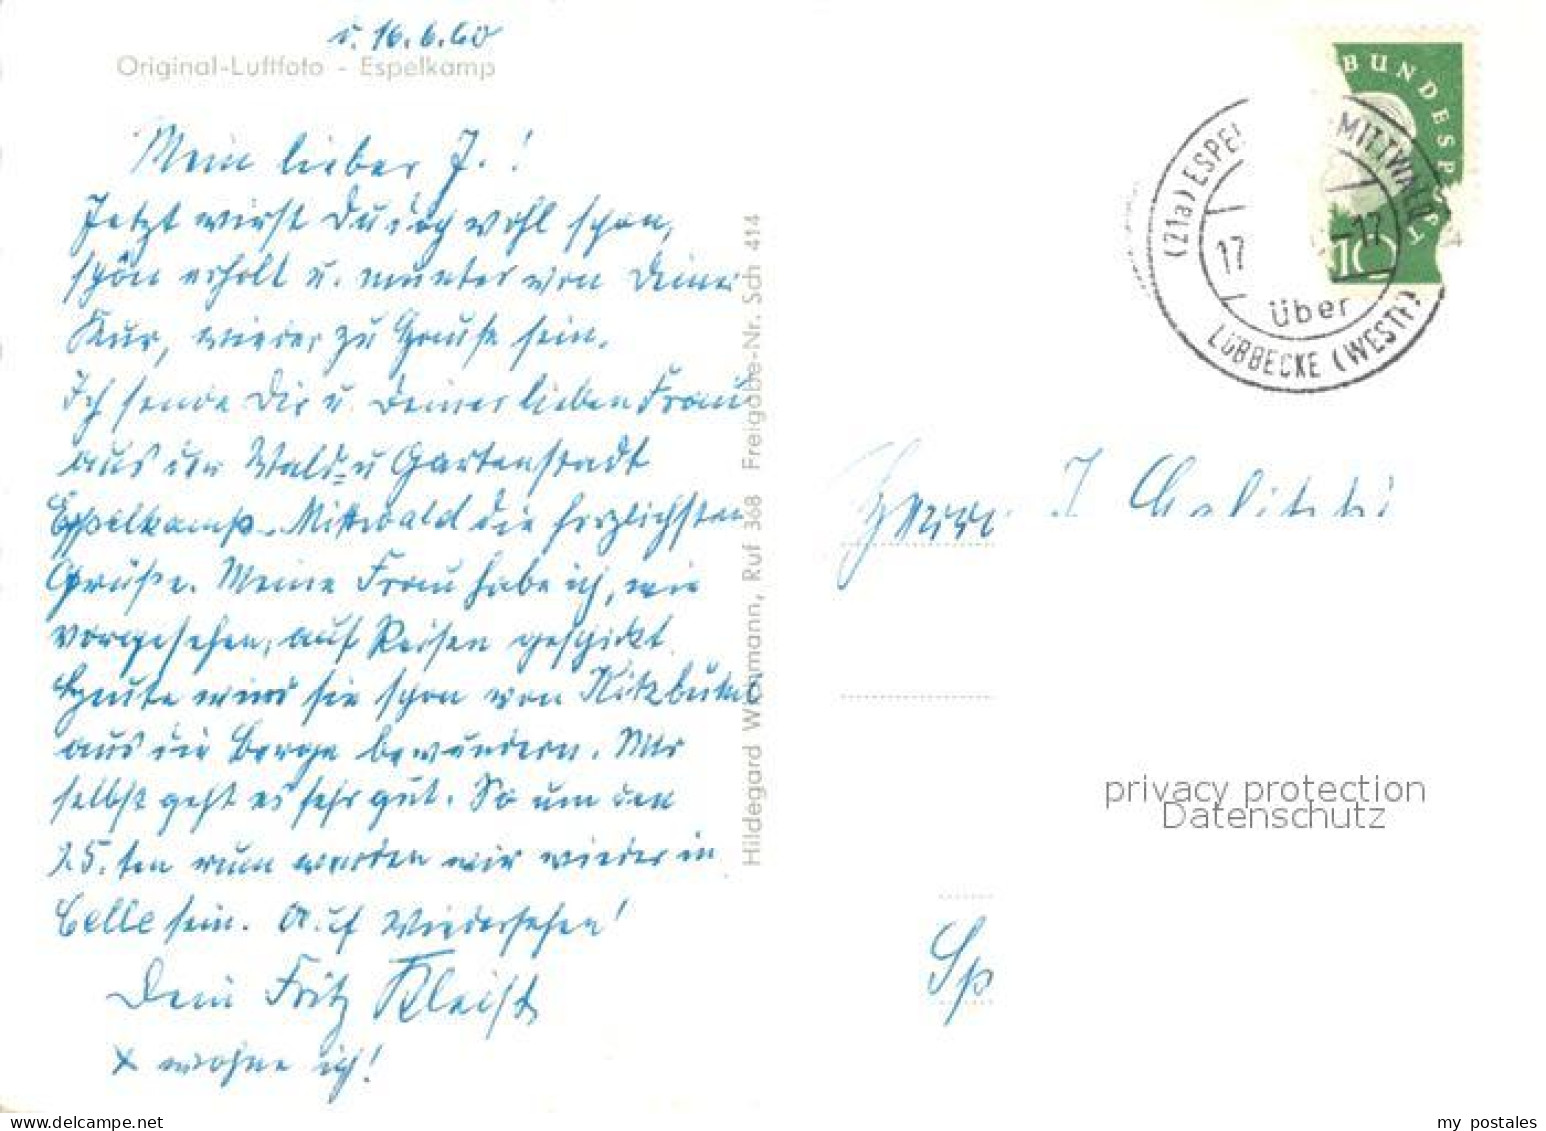 d. 16.6.60
Original-Luftfoto - Espelkamp
Mein lieber J.!
Jetzt wirst Du doch wohl schon,
schön erholt u. munter von Deiner
Kur, wieder zu Hause sein.
Ich sende Dir u. Deiner lieben Frau
aus der Wald- u Gartenstadt
Espelkamp-Mittwald die herzlichsten
Grüße. Meine Frau habe ich, wie
vorgesehen, auf Reisen geschickt.
Heute wird sie schon von Kitzbühel
aus die Berge bewundern. Mir
selbst geht es sehr gut. So um den
25.ten rum werden wir wieder in
Celle sein. Auf Wiedersehen!
Dein Fritz Kleist
x wohne ich!
Hildegard Wichmann, Ruf 368 Freigabe-Nr. Sch 414
BUNDESPOST
10
(21a) ESPEL MITTWALD
17 -17
über
LÜBBECKE (WESTF)
Herrn J
privacy protection
Datenschutz
Sp
my postales